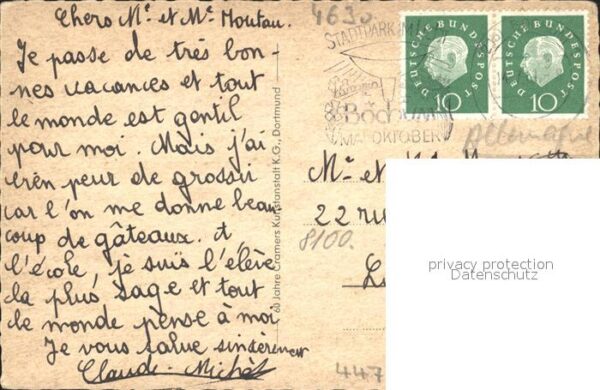 Chers Mr et Me Moutau.
Je passe de très bon-
nes vacances et tout
le monde est gentil
pour moi. Mais j'ai
bien peur de grossir
car l'on me donne beau
coup de gâteaux. A
l'école, je suis l'élève
la plus sage et tout
le monde pense à moi
Je vous salue sincèrement
Claude-Michèle
4630
STADTPARK
Bochum
MAI-OKTOBER
DEUTSCHE BUNDESPOST
10
DEUTSCHE BUNDESPOST
10
Allemagne
60 Jahre Cramers Kunstanstalt K.G., Dortmund
Mr et
22 rue
8100.
447
privacy protection
Datenschutz